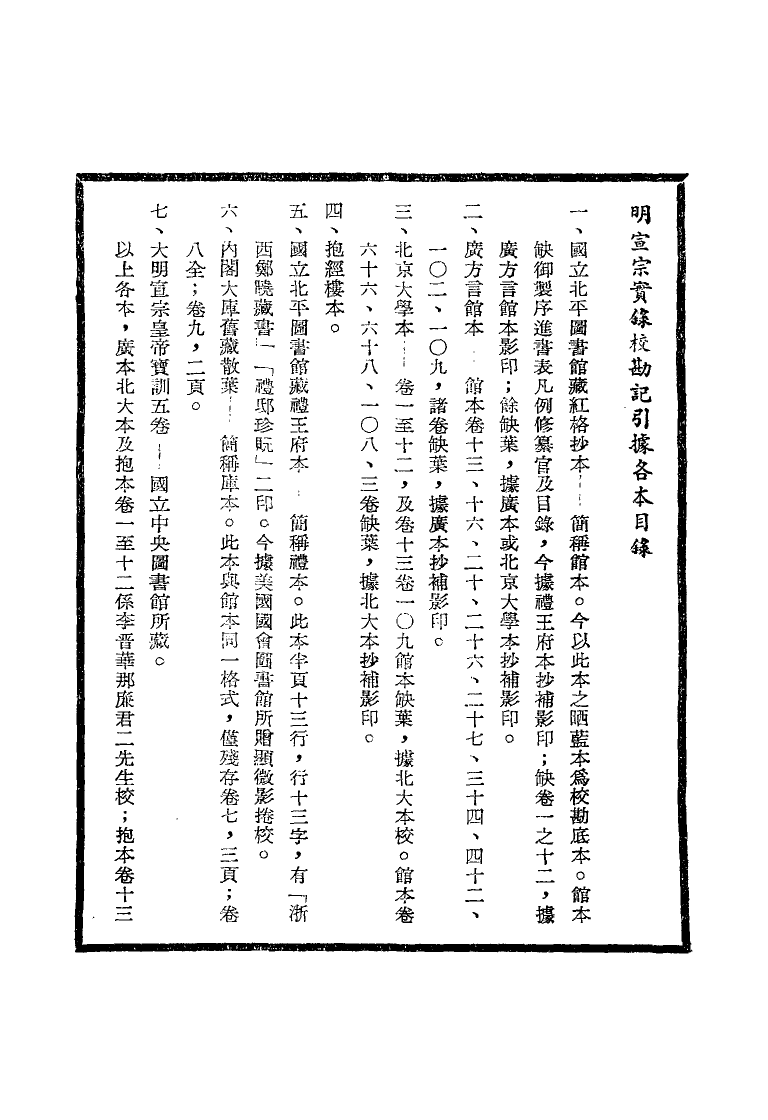 明宣宗實錄校勘記引據各本目錄
一、國立北平圖書館藏紅格抄本——簡稱館本。今以此本之晒藍本爲校勘底本。館本
缺御製序進書表凡例修纂官及目錄,今據禮王府本抄補影印;缺卷一之十二,據
廣方言館本影印;餘缺葉,據廣本或北京大學本抄補影印。
二、廣方言館本——館本卷十三、十六、二十、二十六、二十七、三十四、四十二、
一〇二、一〇九,諸卷缺葉,據廣本抄補影印。
三、北京大學本——卷一至十二,及卷十三卷一〇九館本缺葉,據北大本校。館本卷
六十六、六十八、一〇八、三卷缺葉,據北大本抄補影印。
四、抱經樓本。
五、國立北平圖書館藏禮王府本——簡稱禮本。此本半頁十三行,行十三字,有「浙
西鄭曉藏書」「禮邸珍玩」二印。今據美國國會圖書館所贈顯微影捲校。
六、內閣大庫舊藏散葉——簡稱庫本。此本與館本同一格式,僅殘存卷七,三頁;卷
八全;卷九,二頁。
七、大明宣宗皇帝寶訓五卷——國立中央圖書館所藏。
以上各本,廣本北大本及抱本卷一至十二係李晉華那廉君二先生校;抱本卷十三